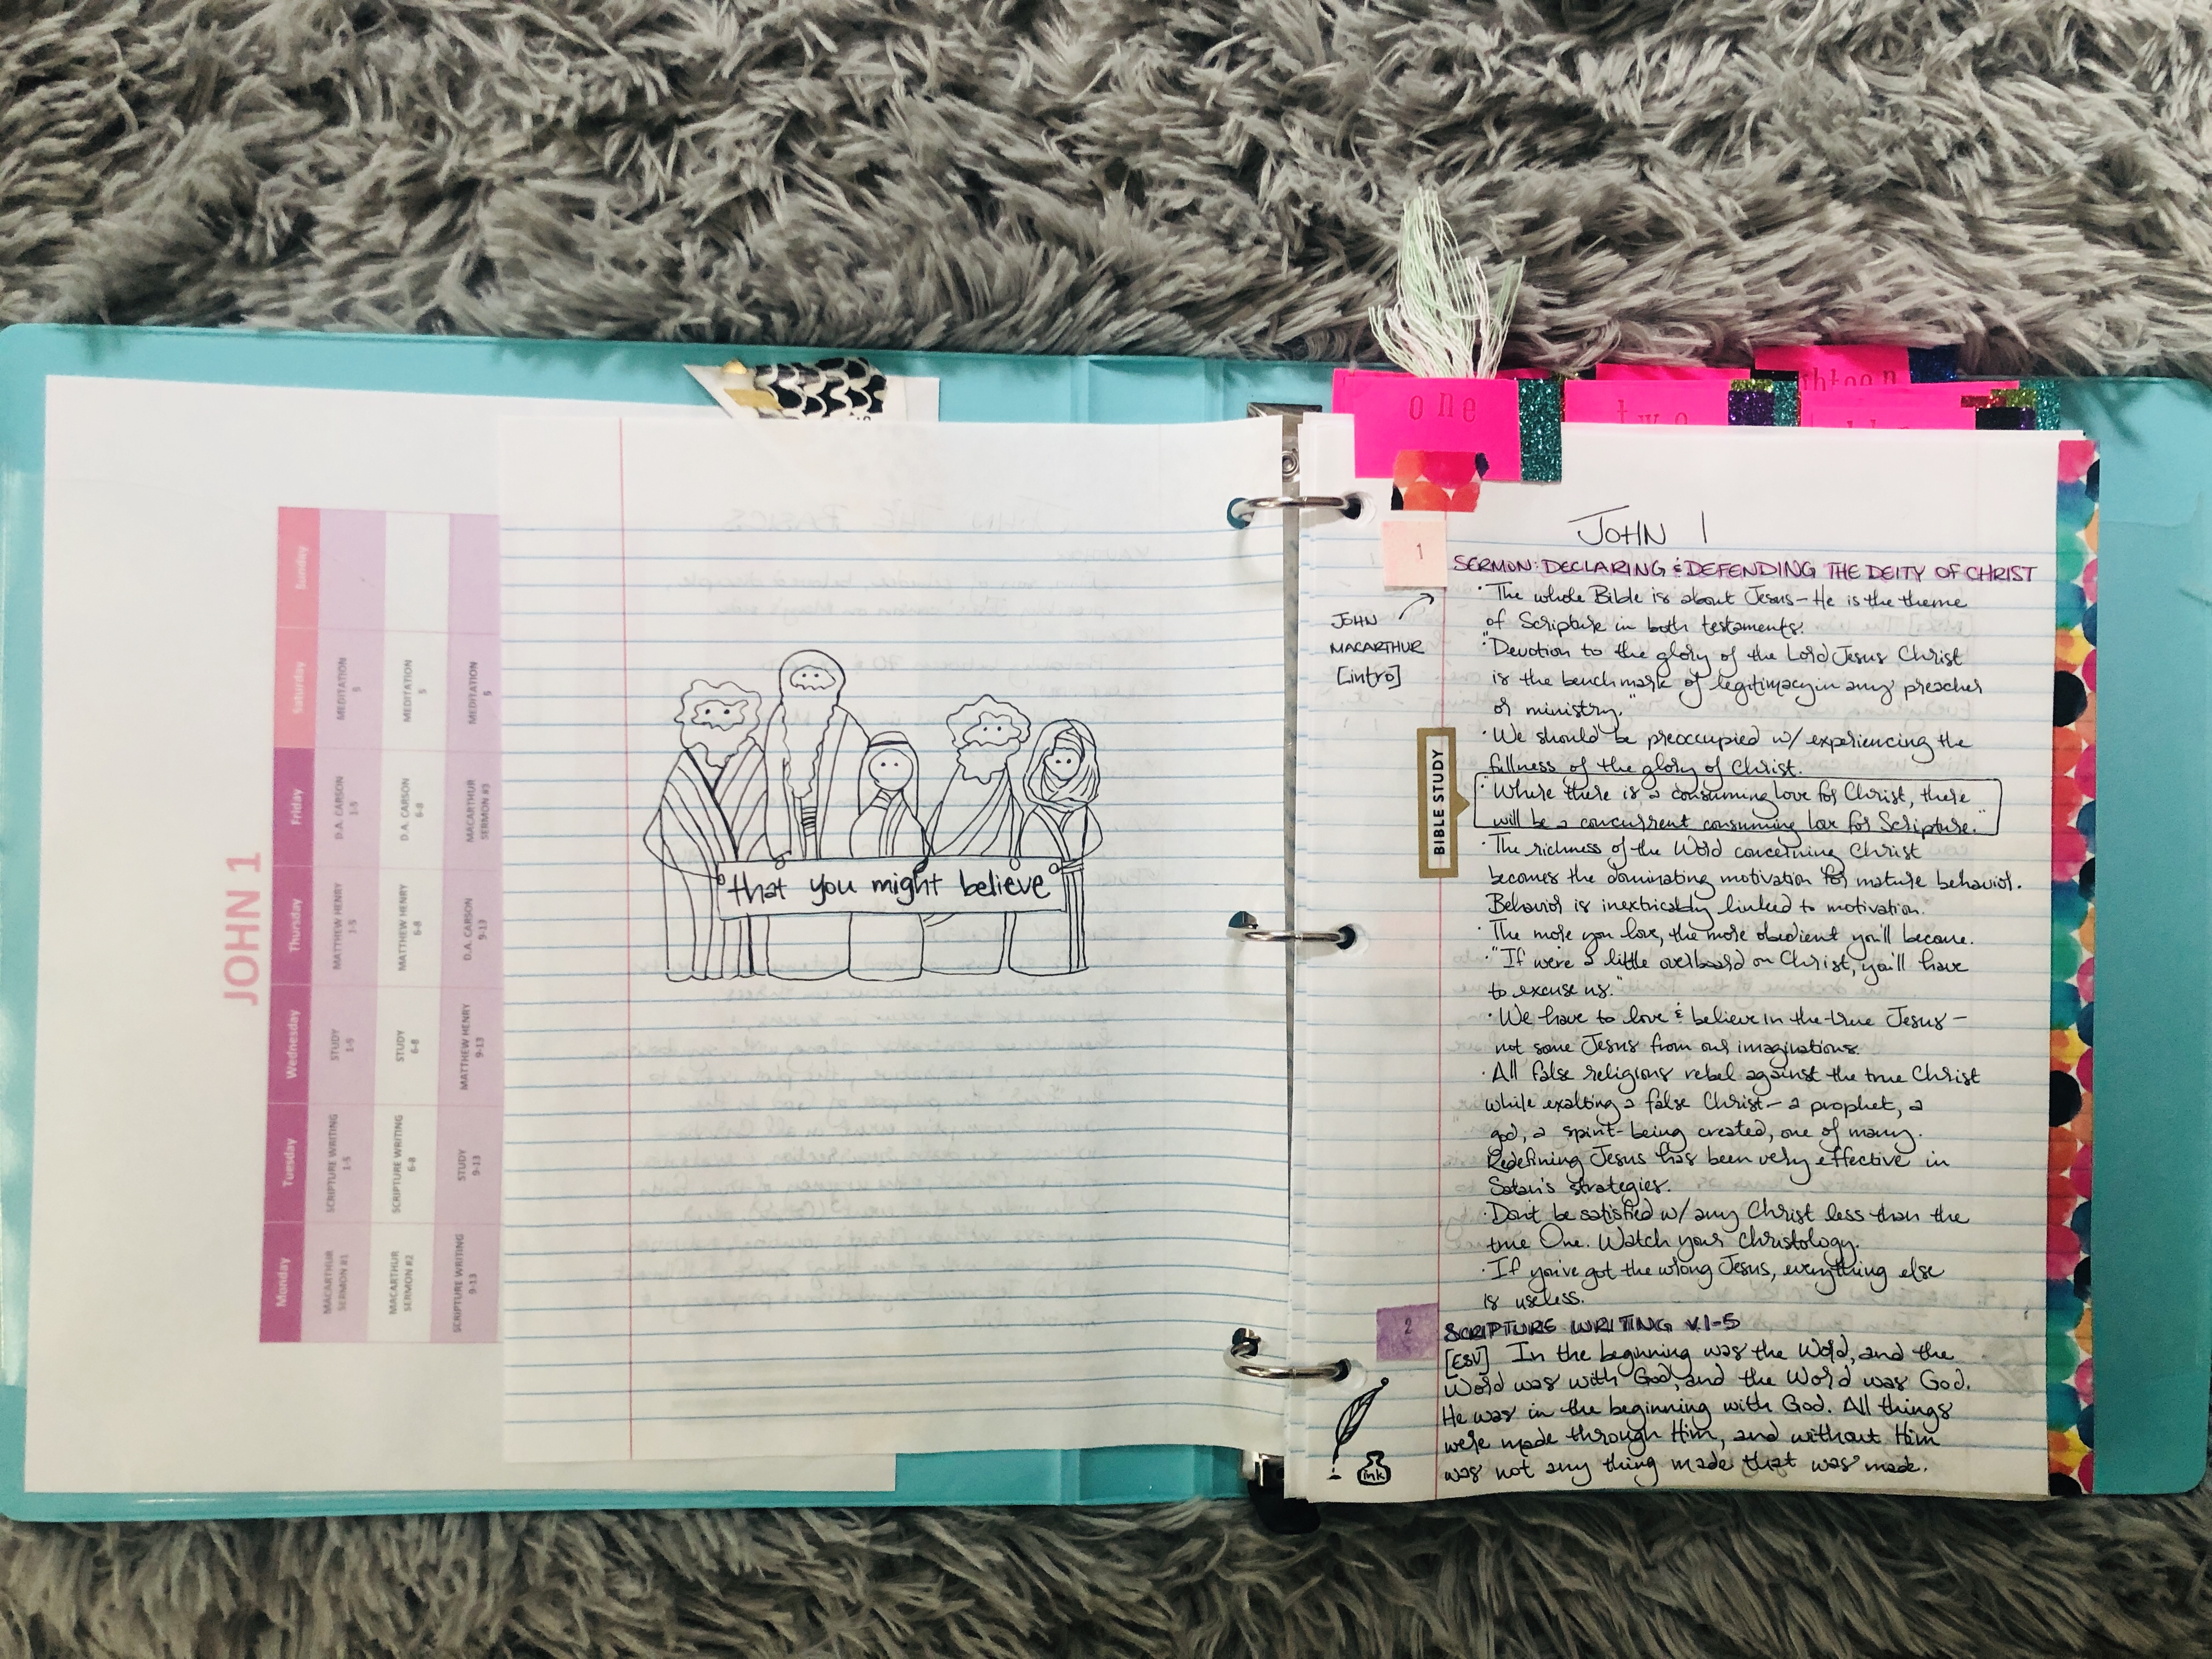 JOHN 1
Monday Tuesday Wednesday Thursday Friday Saturday Sunday
MACARTHUR SERMON #1
SCRIPTURE WRITING 1-5
STUDY 1-5
MATTHEW HENRY 1-5
D.A. CARSON 1-5
MEDITATION 5
MACARTHUR SERMON #2
SCRIPTURE WRITING 6-8
STUDY 6-8
MATTHEW HENRY 6-8
D.A. CARSON 6-8
MEDITATION 5
SCRIPTURE WRITING 9-13
STUDY 9-13
MATTHEW HENRY 9-13
D.A. CARSON 9-13
MACARTHUR SERMON #3
MEDITATION
that you might believe
one
two
JOHN 1
1
SERMON: DECLARING & DEFENDING THE DEITY OF CHRIST
JOHN
MACARTHUR
[intro]
· The whole Bible is about Jesus- He is the theme
of Scripture in both testaments.
· "Devotion to the glory of the Lord Jesus Christ
is the benchmark of legitimacy in any preacher
or ministry."
· We should be preoccupied w/ experiencing the
fullness of the glory of Christ.
BIBLE STUDY
· "Where there is a consuming love for Christ, there
will be a concurrent consuming love for Scripture."
· The richness of the Word concerning Christ
becomes the dominating motivation for mature behavior.
Behavior is inextricably linked to motivation.
· The more you love, the more obedient you'll become.
· "If we're a little overboard on Christ, you'll have
to excuse us."
· We have to love & believe in the true Jesus-
not some Jesus from our imaginations.
· All false religions rebel against the true Christ
while exalting a false Christ- a prophet, a
god, a spirit-being created, one of many.
Redefining Jesus has been very effective in
Satan's strategies.
· Don't be satisfied w/ any Christ less than the
true One. Watch your Christology.
· If you've got the wrong Jesus, everything else
is useless.
2
SCRIPTURE WRITING V.1-5
[ESV] In the beginning was the Word, and the
Word was with God, and the Word was God.
He was in the beginning with God. All things
were made through Him, and without Him
was not any thing made that was made.
ink